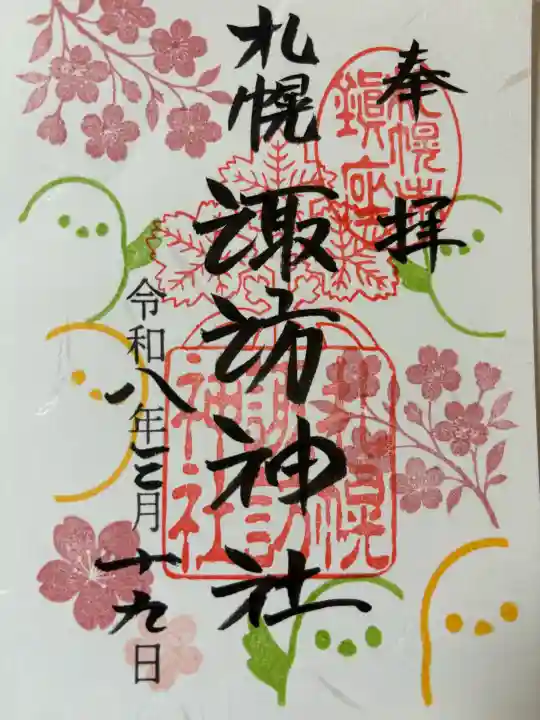 奉拝
札幌市
鎮座
札幌諏訪神社
札幌
諏訪
神社
令和八年三月十九日